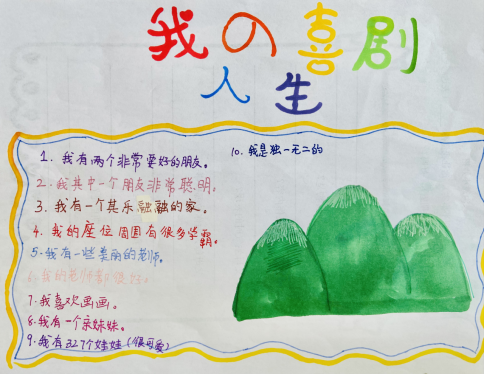 我の喜剧
人生
1. 我有两个非常要好的朋友。
2. 我其中一个朋友非常聪明。
3. 我有一个其乐融融的家。
4. 我的座位周围有很多学霸。
5. 我有一些美丽的老师。
6. 我的老师都很好。
7. 我喜欢画画。
8. 我有一个亲妹妹。
9. 我有327个娃娃(很可爱)
10. 我是独一无二的